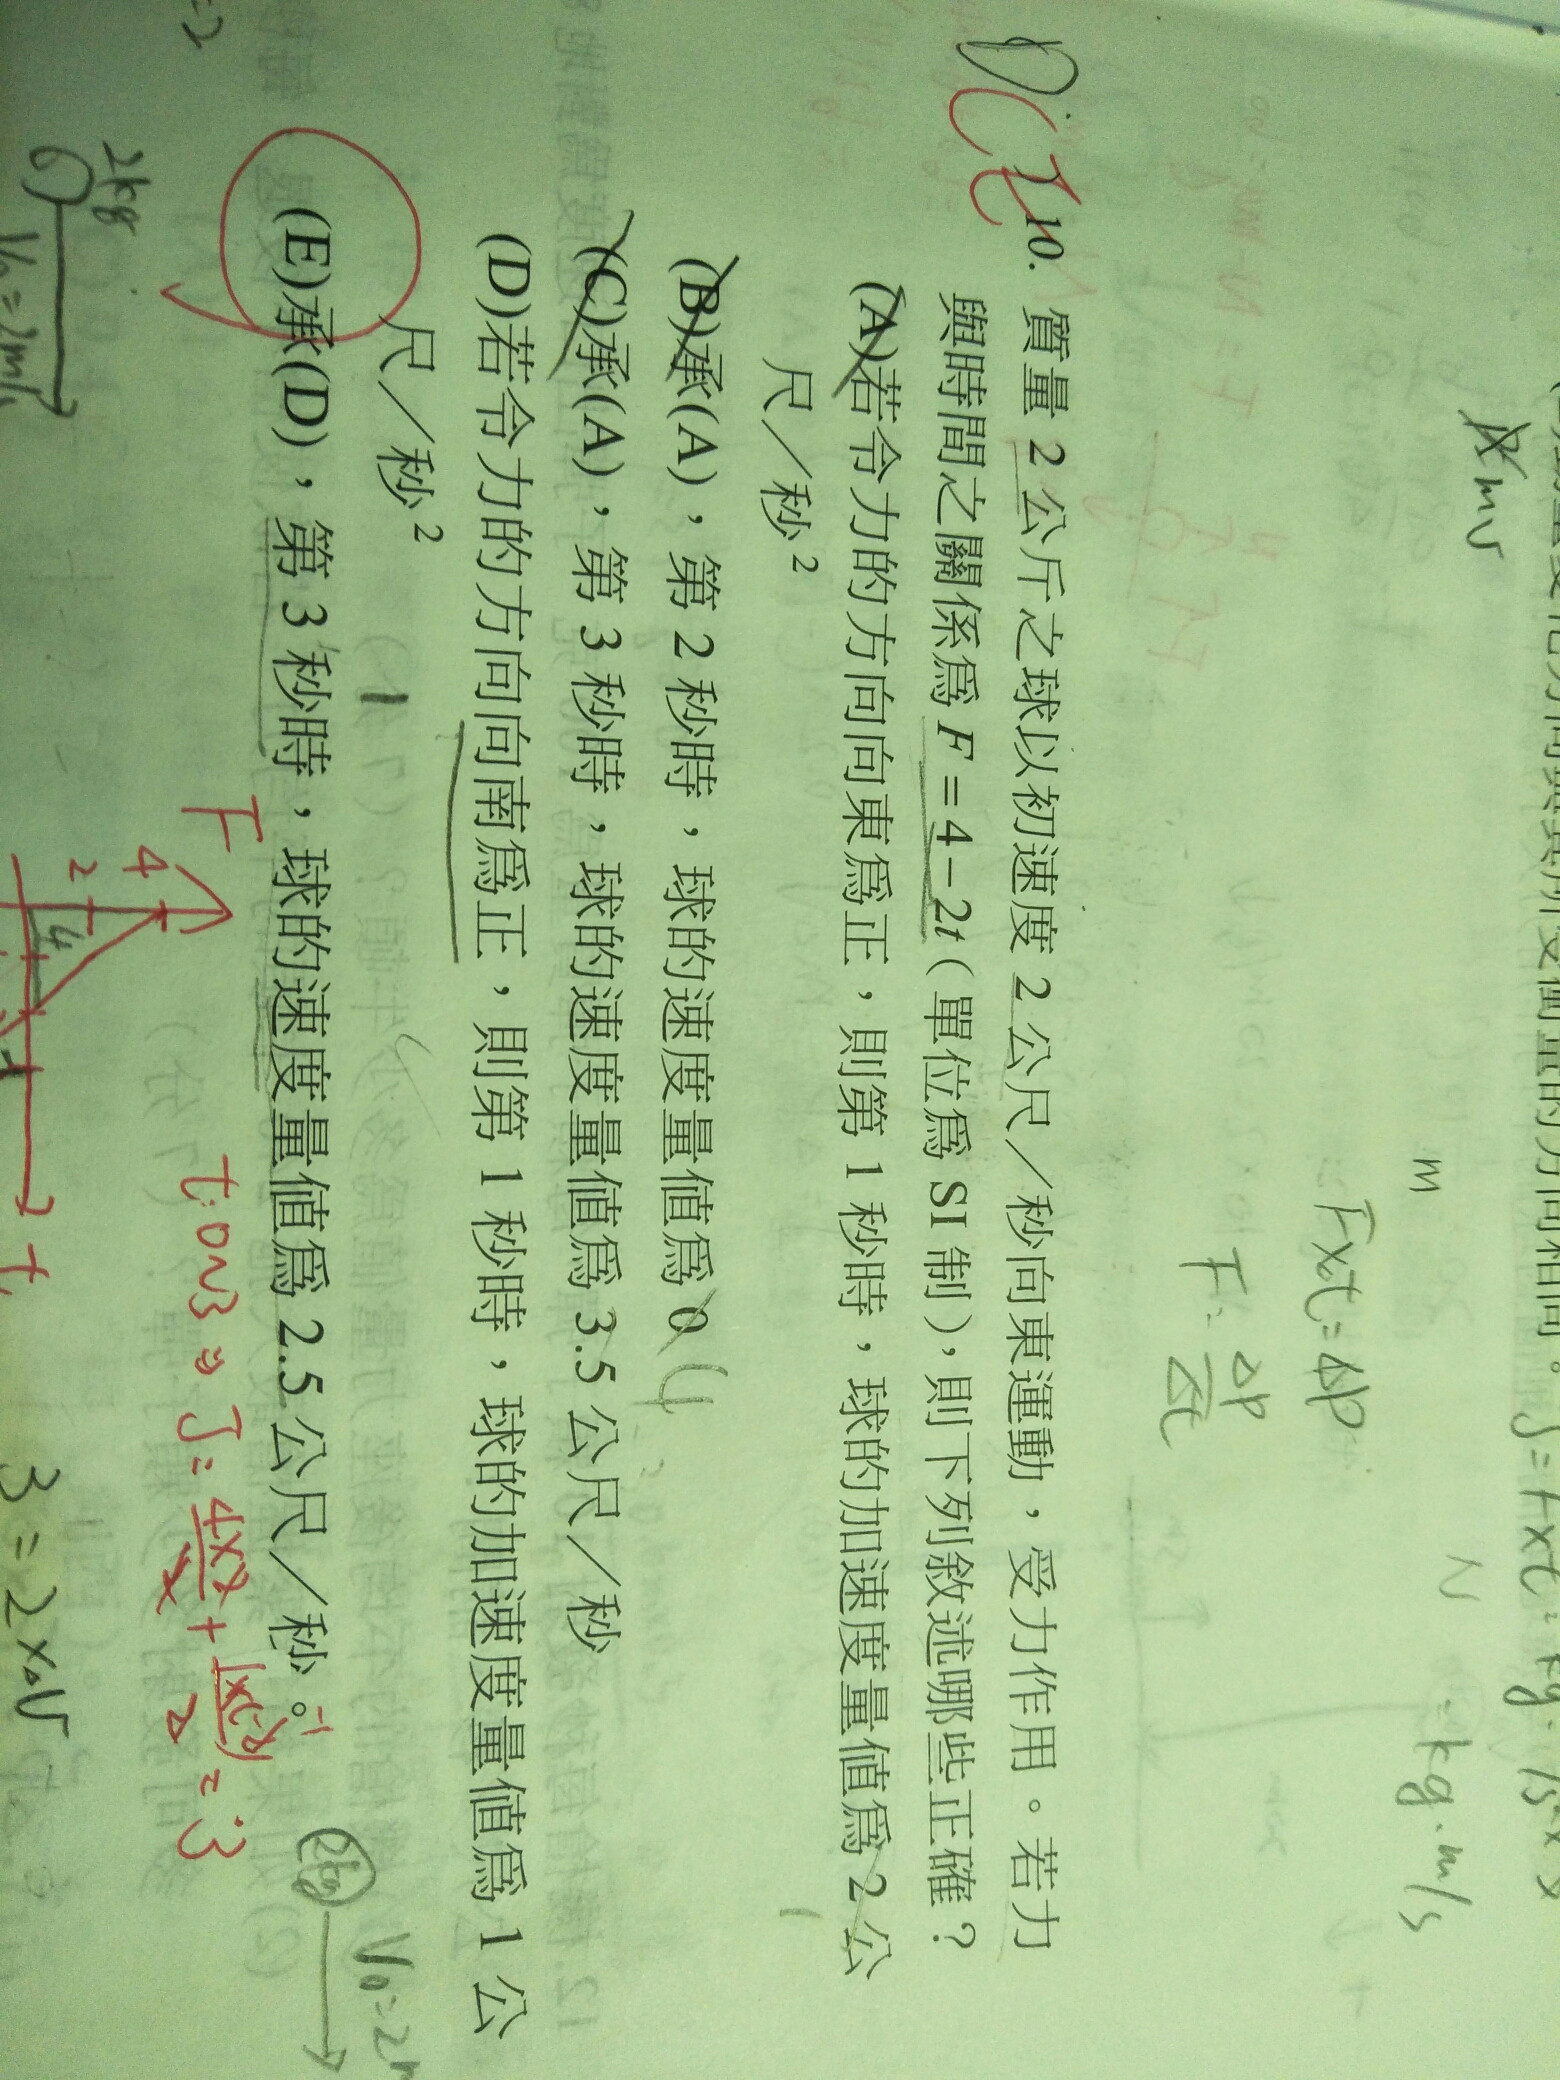 mv
m
N = kg·m/s
F×t=ΔP
F = ΔP/Δt
10. 質量 2 公斤之球以初速度 2 公尺／秒向東運動，受力作用。若力
與時間之關係為 F = 4 − 2t（單位為 SI 制），則下列敘述哪些正確？
(A)若令力的方向向東為正，則第 1 秒時，球的加速度量值為 2 公
尺／秒²
(B)承(A)，第 2 秒時，球的速度量值為 0 4
(C)承(A)，第 3 秒時，球的速度量值為 3.5 公尺／秒
(D)若令力的方向向南為正，則第 1 秒時，球的加速度量值為 1 公
尺／秒²
(E)承(D)，第 3 秒時，球的速度量值為 2.5 公尺／秒。
F
4
2
4
t
t: 0~3 ⇒ J = 4×2/2 + 1×(-2)/2 = 3
-1
2kg
2kg
V₀=2m/s
3 = 2×ΔV